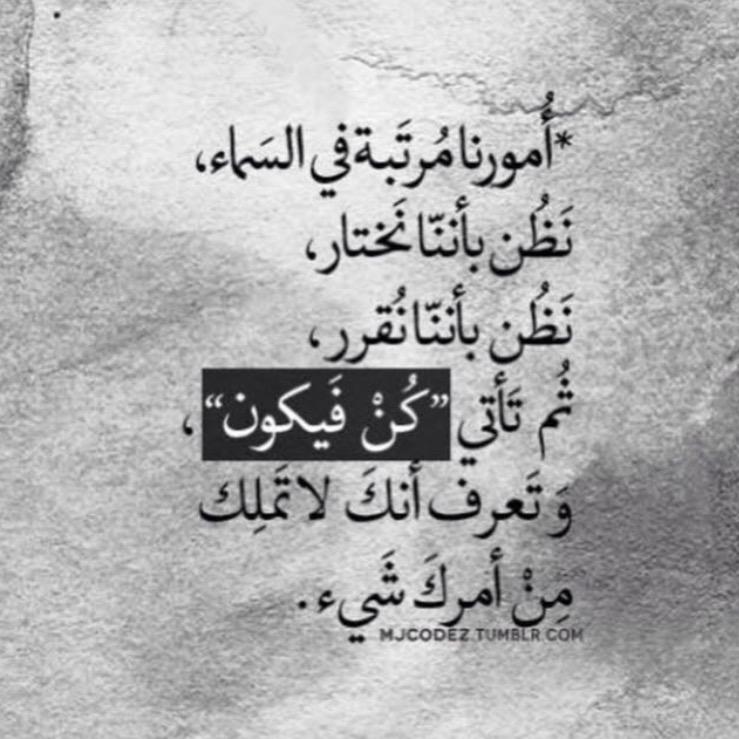 *أُمورنا مُرتَبة في السَماء،
نَظُن بأننّا نَختار،
نَظُن بأننّا نُقرر،
ثُم تَأتي ”كُنْ فَيكون“،
وَ تَعرف أنكَ لا تَملِك
مِنْ أمركَ شَيء.
MJCODEZ.TUMBLR.COM